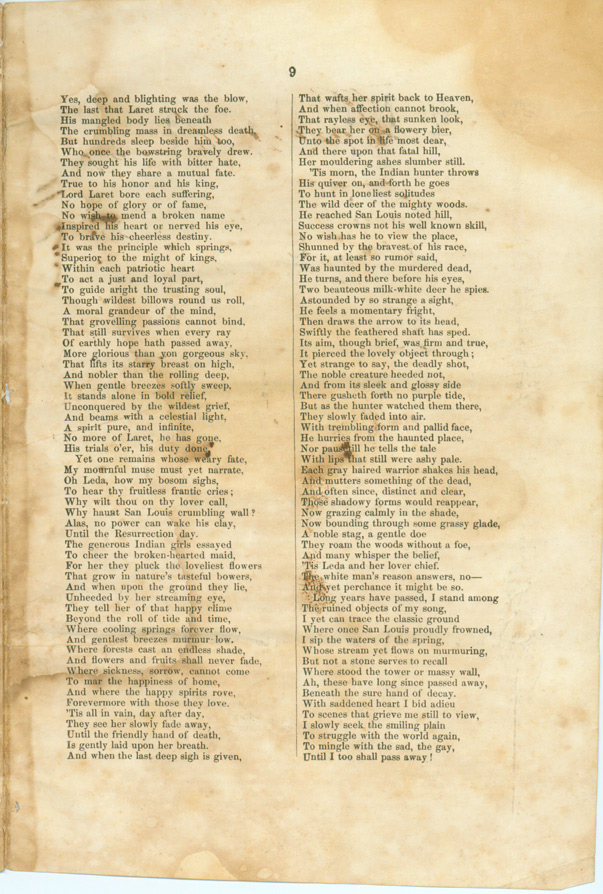 9
Yes, deep and blighting was the blow,
The last that Laret struck the foe.
His mangled body lies beneath
The crumbling mass in dreamless death,
But hundreds sleep beside him too,
Who once the bowstring bravely drew.
They sought his life with bitter hate,
And now they share a mutual fate.
True to his honor and his king,
Lord Laret bore each suffering,
No hope of glory or of fame,
No wish to mend a broken name
Inspired his heart or nerved his eye,
To brave his cheerless destiny.
It was the principle which springs,
Superior to the might of kings,
Within each patriotic heart
To act a just and loyal part,
To guide aright the trusting soul,
Though wildest billows round us roll,
A moral grandeur of the mind,
That grovelling passions cannot bind.
That still survives when every ray
Of earthly hope hath passed away.
More glorious than yon gorgeous sky.
That lifts its starry breast on high,
And nobler than the rolling deep,
When gentle breezes softly sweep,
It stands alone in bold relief,
Unconquered by the wildest grief,
And beams with a celestial light,
A spirit pure, and infinite,
No more of Laret, he has gone,
His trials o'er, his duty done,
Yet one remains whose weary fate,
My mournful muse must yet narrate,
Oh Leda, how my bosom sighs,
To hear thy fruitless frantic cries;
Why wilt thou on thy lover call,
Why haunt San Louis crumbling wall?
Alas, no power can wake his clay,
Until the Resurrection day.
The generous Indian girls essayed
To cheer the broken-hearted maid,
For her they pluck the loveliest flowers
That grow in nature's tasteful bowers,
And when upon the ground they lie,
Unheeded by her streaming eye,
They tell her of that happy clime
Beyond the roll of tide and time,
Where cooling springs forever flow,
And gentlest breezes murmur low.
Where forests cast an endless shade,
And flowers and fruits shall never fade,
Where sickness, sorrow, cannot come
To mar the happiness of home,
And where the happy spirits rove,
Forevermore with those they love.
'Tis all in vain, day after day,
They see her slowly fade away,
Until the friendly hand of death,
Is gently laid upon her breath.
And when the last deep sigh is given,
That wafts her spirit back to Heaven,
And when affection cannot brook,
That rayless eye, that sunken look,
They bear her on a flowery bier,
Unto the spot in life most dear,
And there upon that fatal hill,
Her mouldering ashes slumber still.
'Tis morn, the Indian hunter throws
His quiver on, and forth he goes
To hunt in loneliest solitudes
The wild deer of the mighty woods.
He reached San Louis noted hill,
Success crowns not his well known skill,
No wish has he to view the place,
Shunned by the bravest of his race,
For it, at least so rumor said,
Was haunted by the murdered dead,
He turns, and there before his eyes,
Two beauteous milk-white deer he spies.
Astounded by so strange a sight,
He feels a momentary fright,
Then draws the arrow to its head,
Swiftly the feathered shaft has sped.
Its aim, though brief, was firm and true,
It pierced the lovely object through;
Yet strange to say, the deadly shot,
The noble creature heeded not,
And from its sleek and glossy side
There gusheth forth no purple tide,
But as the hunter watched them there,
They slowly faded into air.
With trembling form and pallid face,
He hurries from the haunted place,
Nor till he tells the tale
With lips that still were ashy pale.
Each gray haired warrior shakes his head,
And mutters something of the dead,
And often since, distinct and clear,
Those shadowy forms would reappear,
Now grazing calmly in the shade,
Now bounding through some grassy glade,
A noble stag, a gentle doe
They roam the woods without a foe,
And many whisper the belief,
'Tis Leda and her lover chief.
The white man's reason answers, no—
And yet perchance it might be so.
Long years have passed, I stand among
The ruined objects of my song,
I yet can trace the classic ground
Where once San Louis proudly frowned,
I sip the waters of the spring,
Whose stream yet flows on murmuring,
But not a stone serves to recall
Where stood the tower or massy wall,
Ah, these have long since passed away,
Beneath the sure hand of decay.
With saddened heart I bid adieu
To scenes that grieve me still to view,
I slowly seek the smiling plain
To struggle with the world again,
To mingle with the sad, the gay,
Until I too shall pass away!